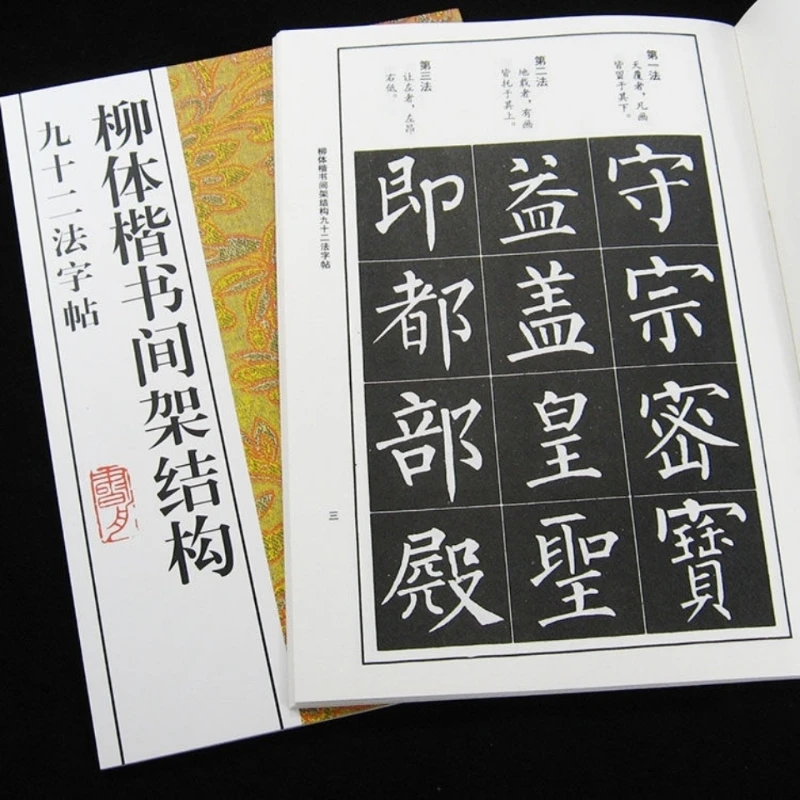 柳体楷书间架结构
九十二法字帖
第一法
天覆者，凡画
皆冒于其下。
第二法
地载者，有画
皆托于其上。
第三法
让左者，左昂
右低。
守宗密寶
益盖皇聖
即都部殿
柳体楷书间架结构九十二法字帖
三